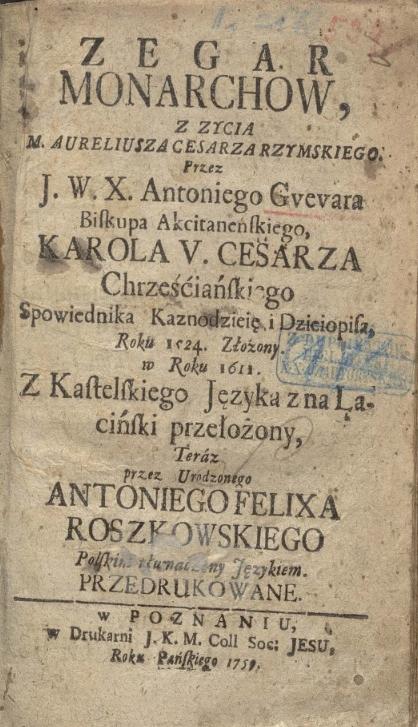 ZEGAR
MONARCHOW,
Z ZYCIA
M. AURELIUSZA CESARZA RZYMSKIEGO.
Przez
J. W. X. Antoniego Gvevara
Biſkupa Akcitaneńſkiego,
KAROLA V. CESARZA
Chrześćiańſkiego
Spowiednika Kaznodzieię i Dzieiopiſa,
Roku 1524. Złożony.
w Roku 1611.
Z Kaſtelſkiego Języka z na Ła-
ciński przełożony,
Teráz
przez Urodzonego
ANTONIEGO FELIXA
ROSZKOWSKIEGO
Polſkim tłumaczony Językiem.
PRZEDRUKOWANE.
W POZNANIU,
w Drukarni J. K. M. Coll Soc: JESU,
Roku Pańſkiego 1759.